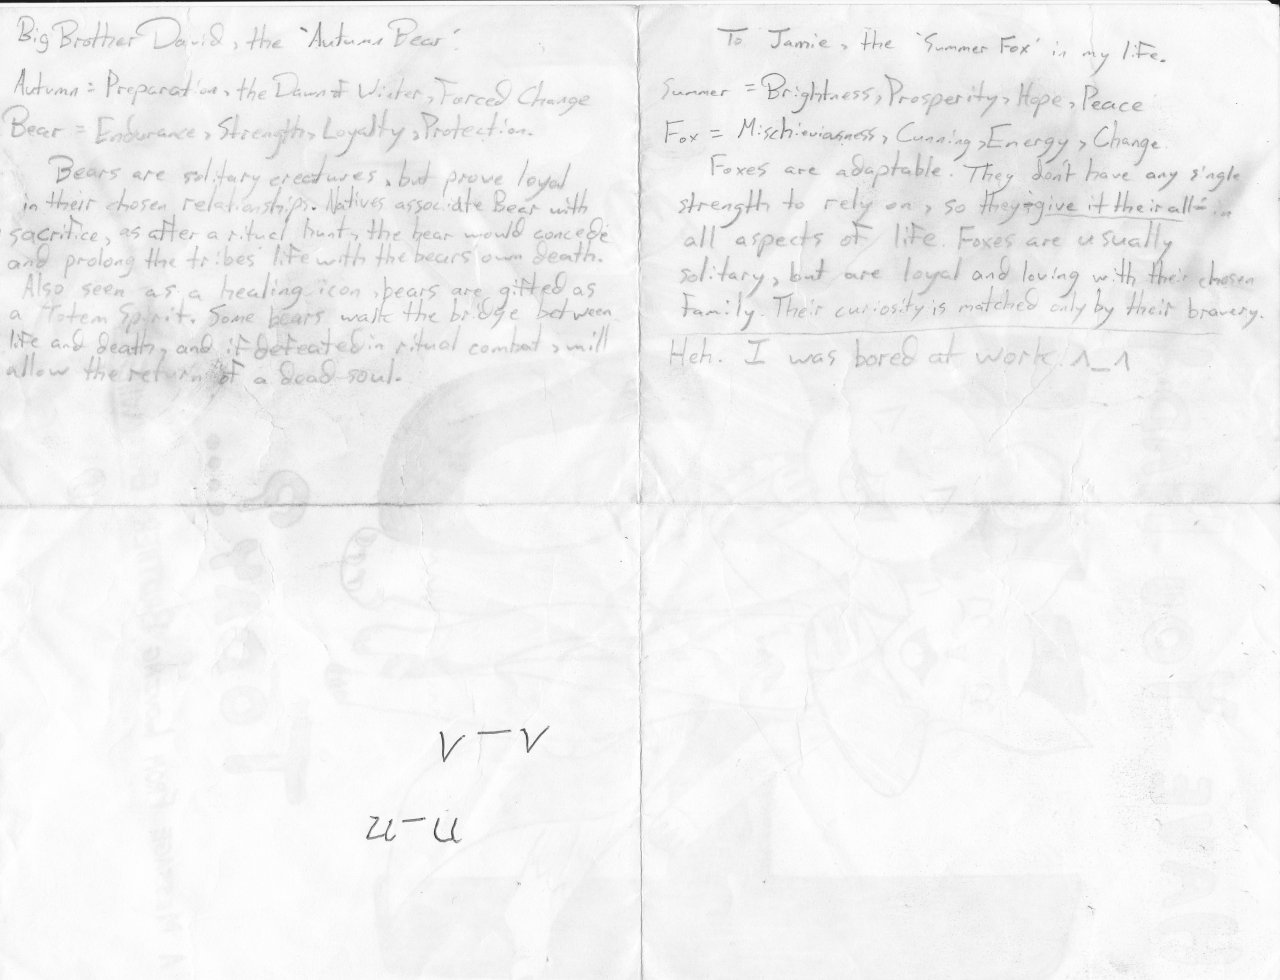 Big Brother David, the "Autumn Bear".
Autumn = Preparation, the Dawn of Winter, Forced Change
Bear = Endurance, Strength, Loyalty, Protection.
Bears are solitary creatures, but prove loyal
in their chosen relationships. Natives associate Bear with
sacrifice, as after a ritual hunt, the bear would concede
and prolong the tribes' life with the bears own death.
Also seen as a healing icon, bears are gifted as
a Totem Spirit. Some bears walk the bridge between
life and death, and if defeated in ritual combat, will
allow the return of a dead soul.
To Jamie, the "Summer Fox" in my life.
Summer = Brightness, Prosperity, Hope, Peace
Fox = Mischieviousness, Cunning, Energy, Change.
Foxes are adaptable. They don't have any single
strength to rely on, so they give it their all in
all aspects of life. Foxes are usually
solitary, but are loyal and loving with their chosen
Family. Their curiosity is matched only by their bravery.
Heh. I was bored at work. ^_^
v-v
u-u